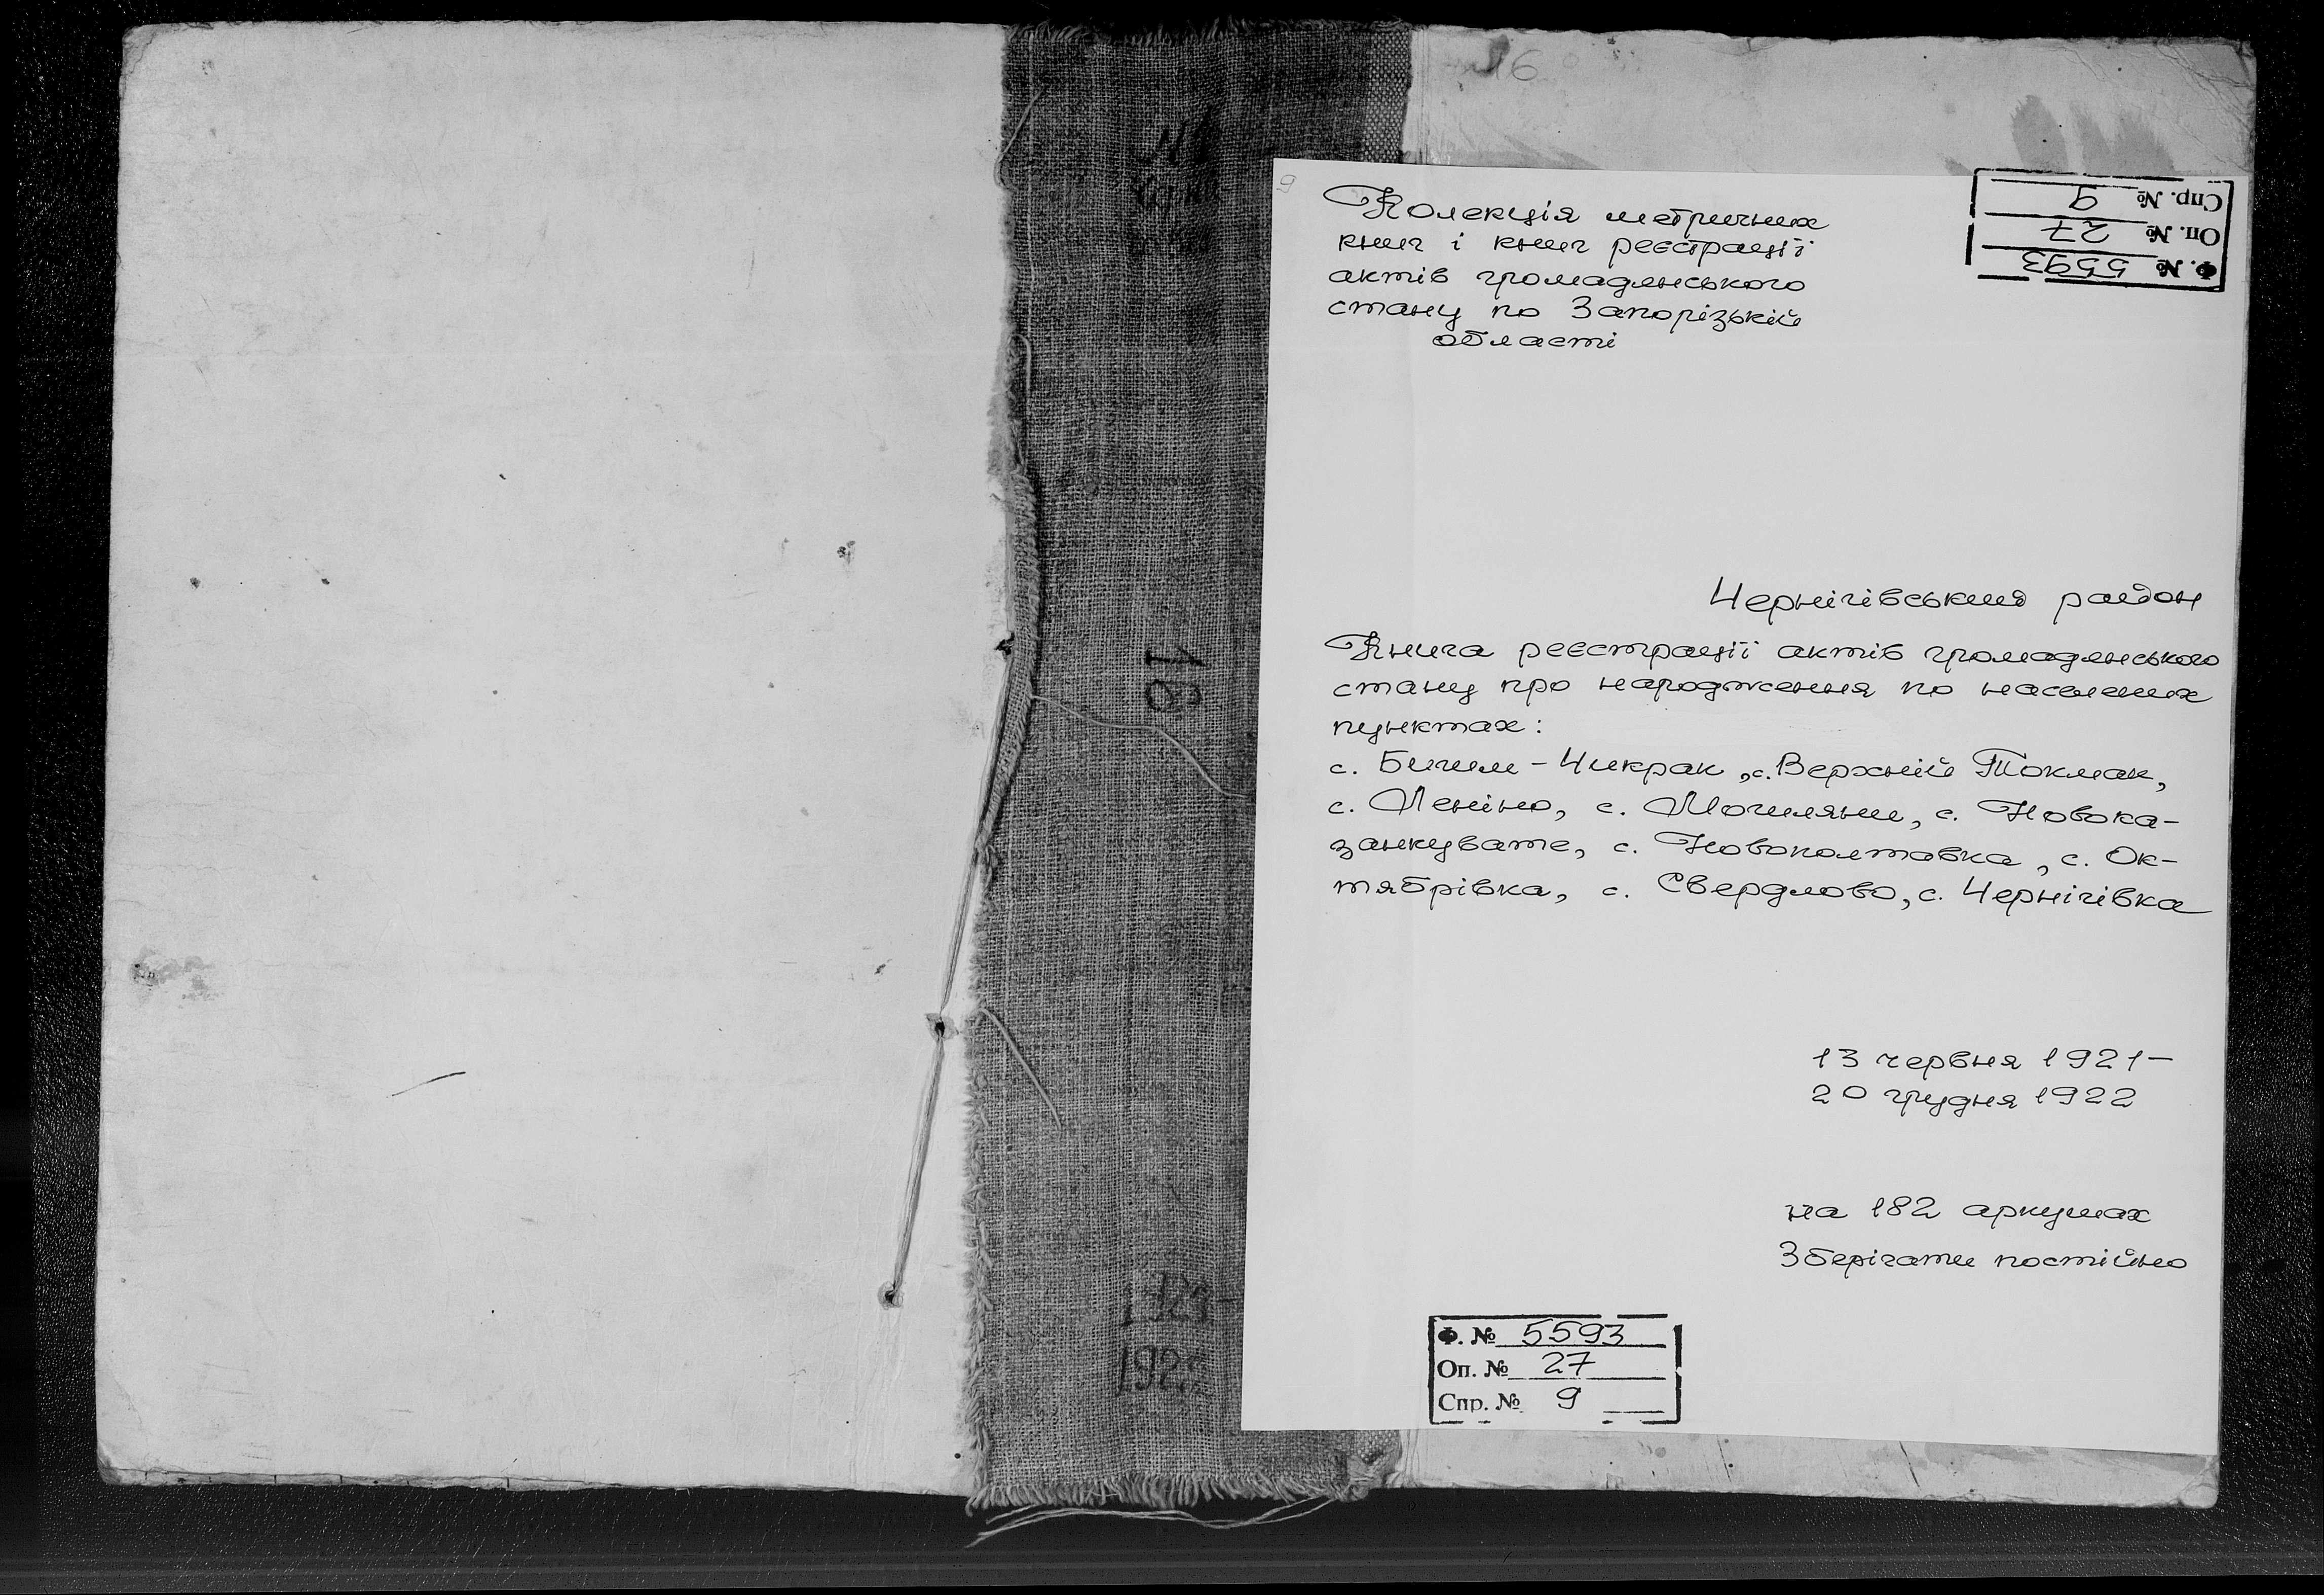 16
9
Колекція метричних
книг і книг реєстрації
актів громадянського
стану по Запорізькій
області
Ф. № 5593
Оп. № 27
Спр. № 9
Чернігівський район
Книга реєстрації актів громадянського
стану про народження по населених
пунктах:
с. Бигим-Чикрак, с. Верхній Токмак,
с. Леніно, с. Могиляни, с. Новока-
занкувате, с. Новополтавка, с. Ок-
тябрівка, с. Свердлово, с. Чернігівка
13 червня 1921-
20 грудня 1922
на 182 аркушах
Зберігати постійно
Ф. № 5593
Оп. № 27
Спр. № 9
18